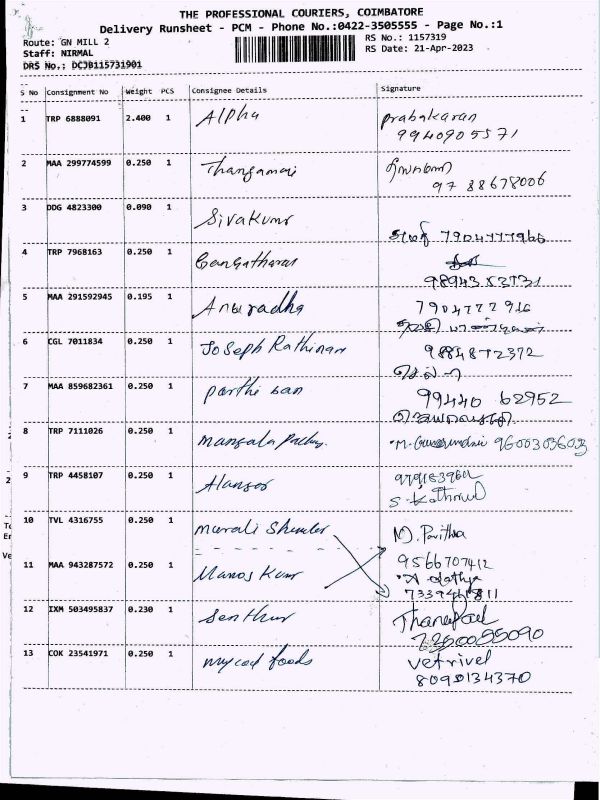 THE PROFESSIONAL COURIERS, COIMBATORE
Delivery Runsheet - PCM - Phone No.:0422-3505555 - Page No.:1
Route: GN MILL 2
RS No.: 1157319
Staff: NIRMAL
RS Date: 21-Apr-2023
DRS No.: DCJB115731901
S No Consignment No Weight PCS Consignee Details Signature
1 TRP 6888091 2.400 1 Alpha prabakaran
9940905571
2 MAA 299774599 0.250 1 Thangamani
97 88678006
3 DDG 4823300 0.090 1 Sivakumar
4 TRP 7968163 0.250 1 Gangatharan
5 MAA 291592945 0.195 1 Anuradha
6 CGL 7011834 0.250 1 JoSeph Rathinam
9884872372
7 MAA 859682361 0.250 1 parthi ban 99440 62952
8 TRP 7111026 0.250 1 mangala 9600303603
9 TRP 4458107 0.250 1
10 TVL 4316755 0.250 1 murali N. Pavithra
11 MAA 943287572 0.250 1 Manoj Kumar 9566707412
12 IXM 503495837 0.230 1 Senthur
7260055090
13 COK 23541971 0.250 1 foods vetrivel
8090134370